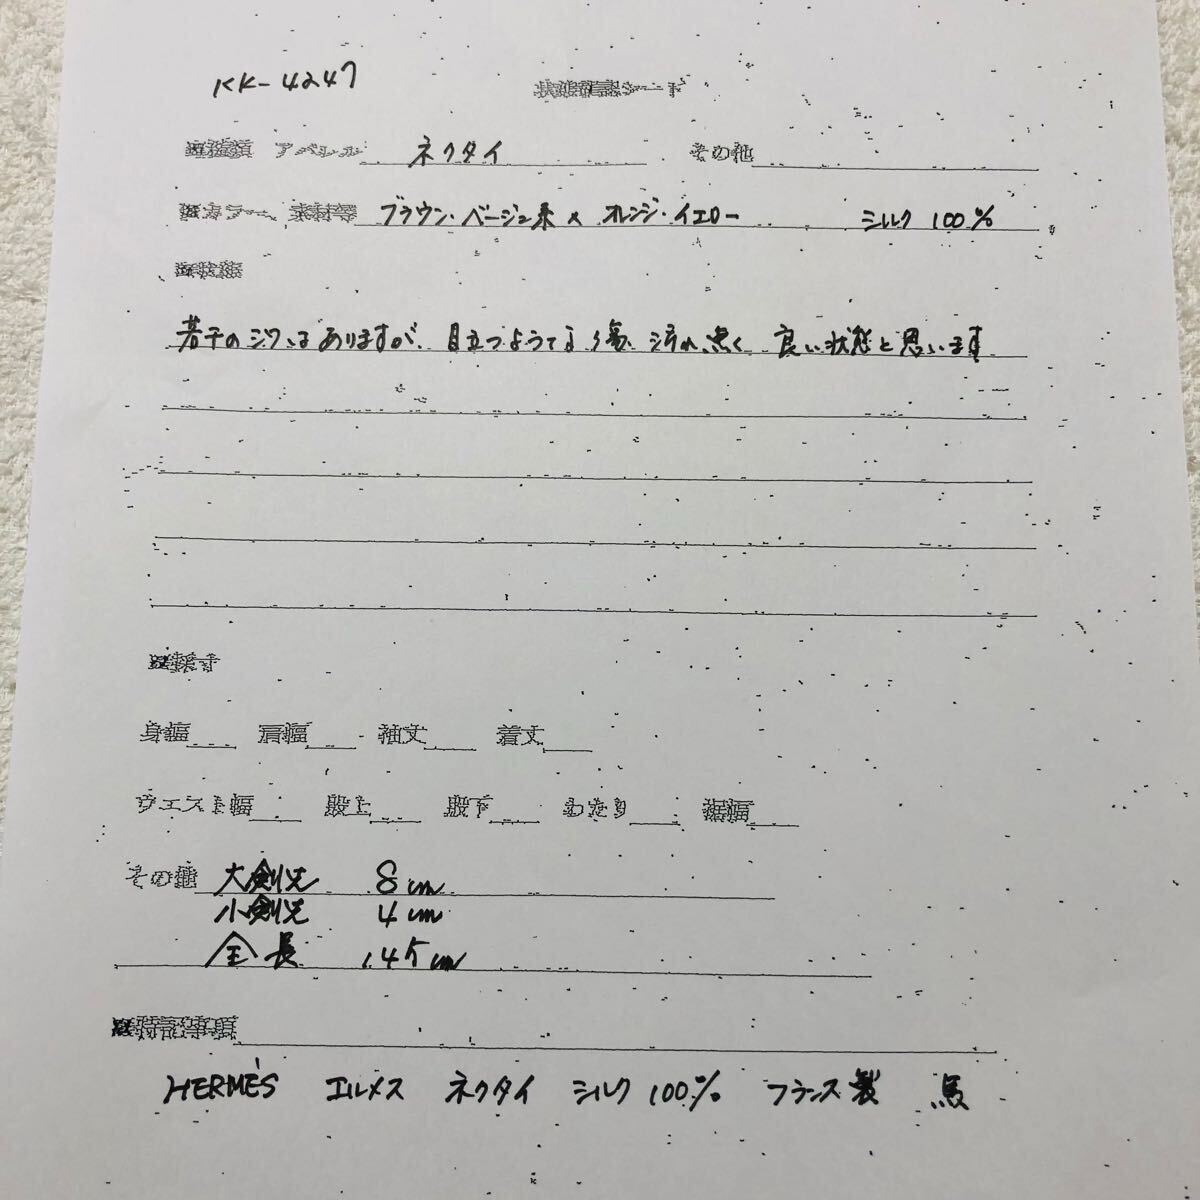 KK-4247
状態確認シート
■種類 アパレル ネクタイ その他
■カラー、素材等 ブラウン・ベージュ系 × オレンジ・イエロー シルク 100%
■状態
若干のシワはありますが、目立つような傷、汚れ無く 良い状態と思います
■採寸
身幅 肩幅 袖丈 着丈
ウエスト幅 股上 股下 わたり 裾幅
その他 大剣先 8cm
小剣先 4cm
全長 145cm
■特記事項
HERMÈS エルメス ネクタイ シルク 100% フランス製 馬